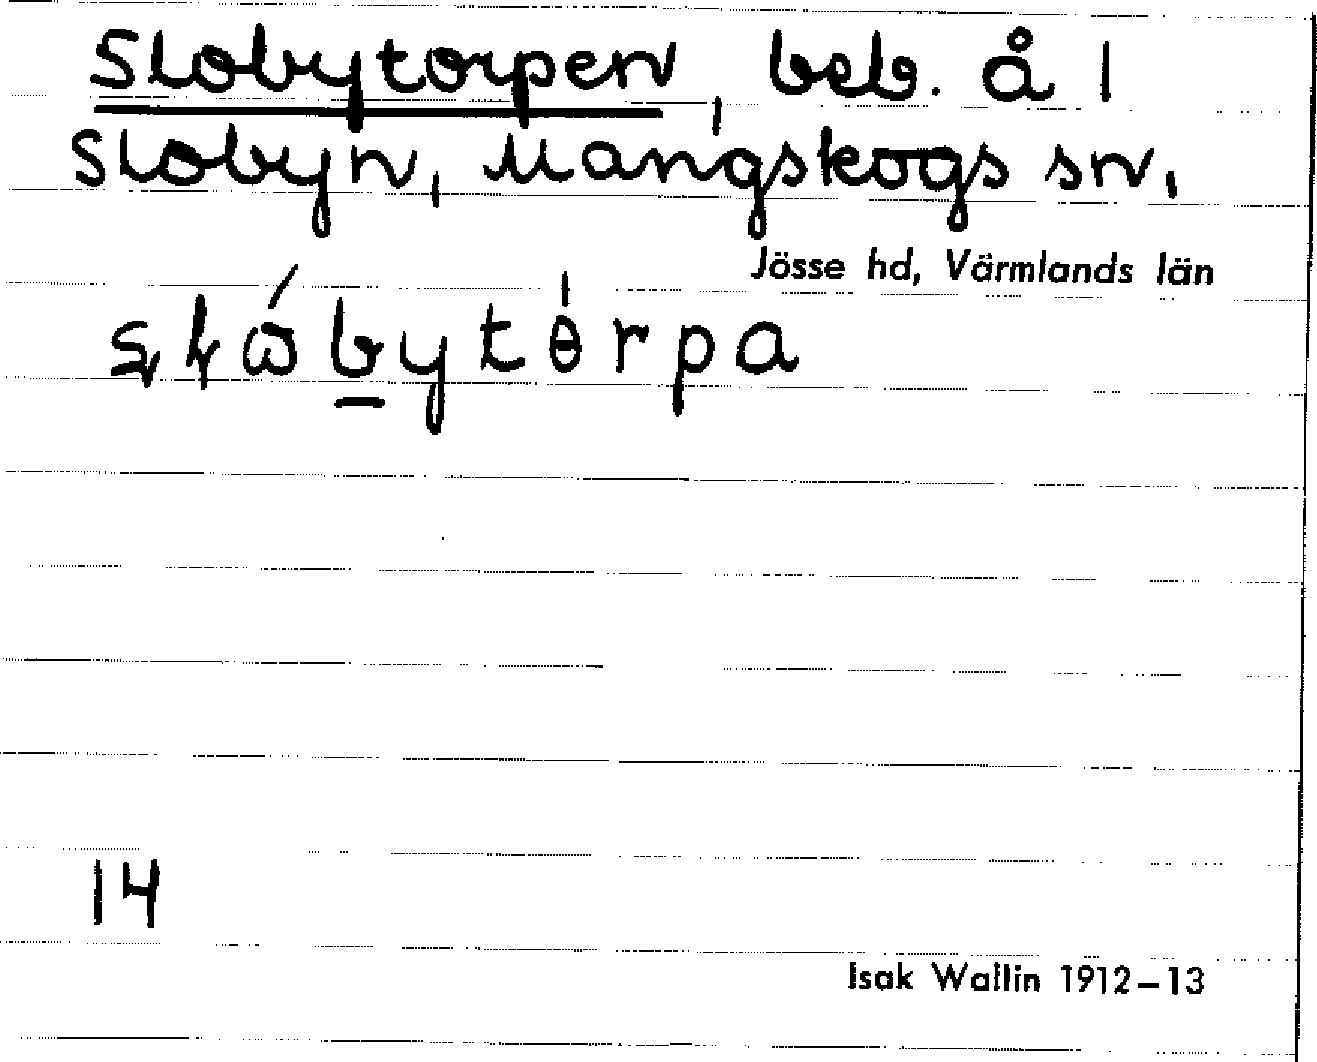 Slobytorpen, beb. å 1
Slobyn, Mangskogs sn,
Jösse hd, Värmlands län
14
Isak Wallin 1912–13